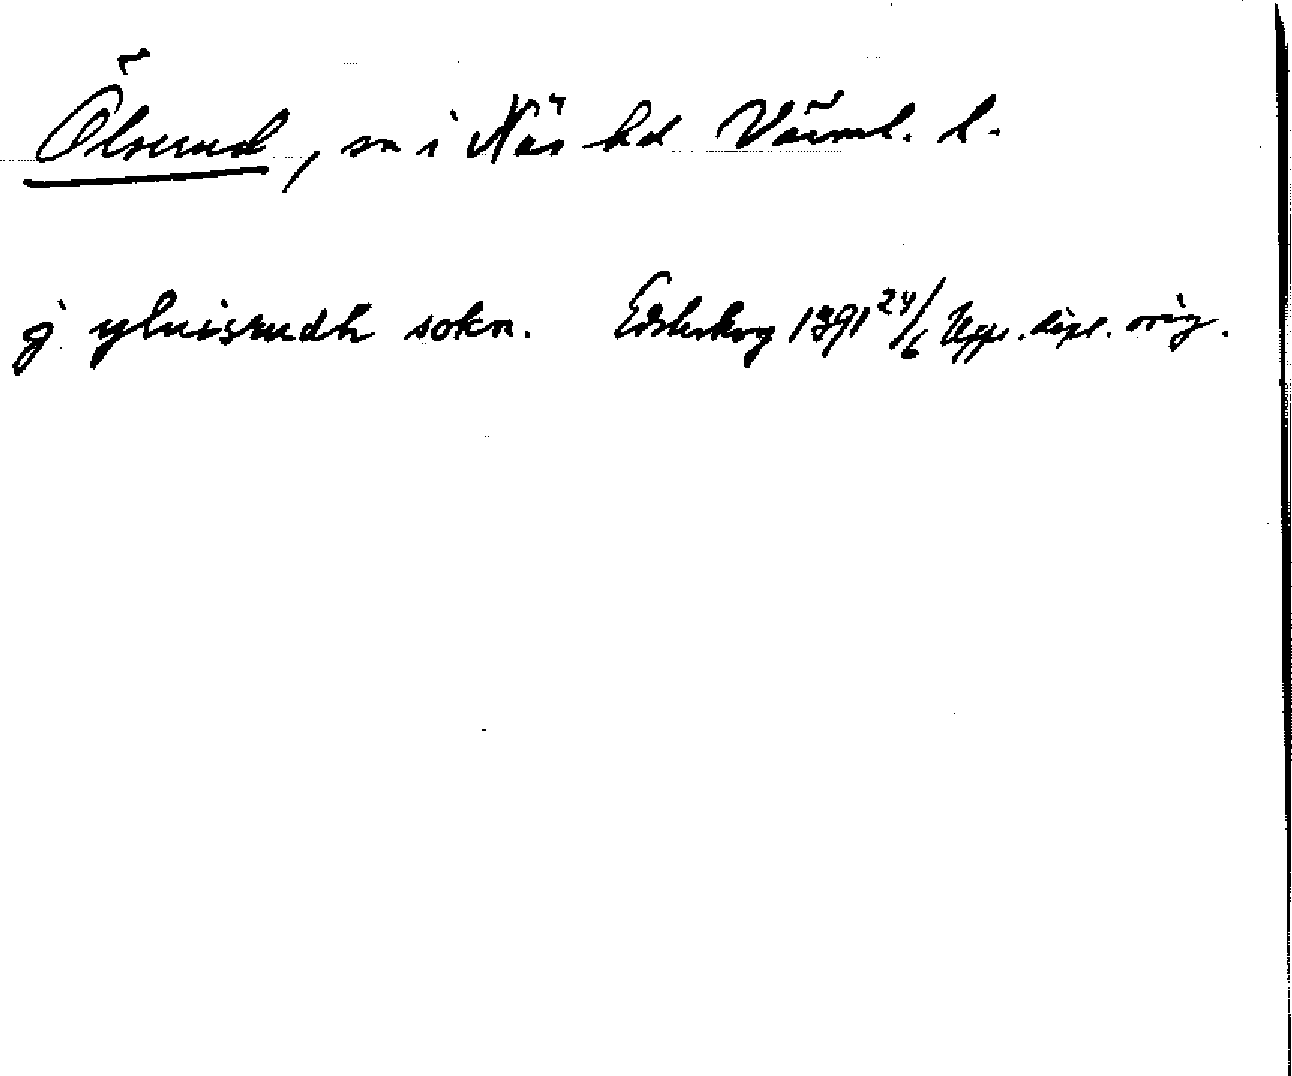 Ölserud, sn i Näs hd Värml. l.
j yluisrudh sokn. Edsleskog 1391 24/6 Upps. dipl. orig.